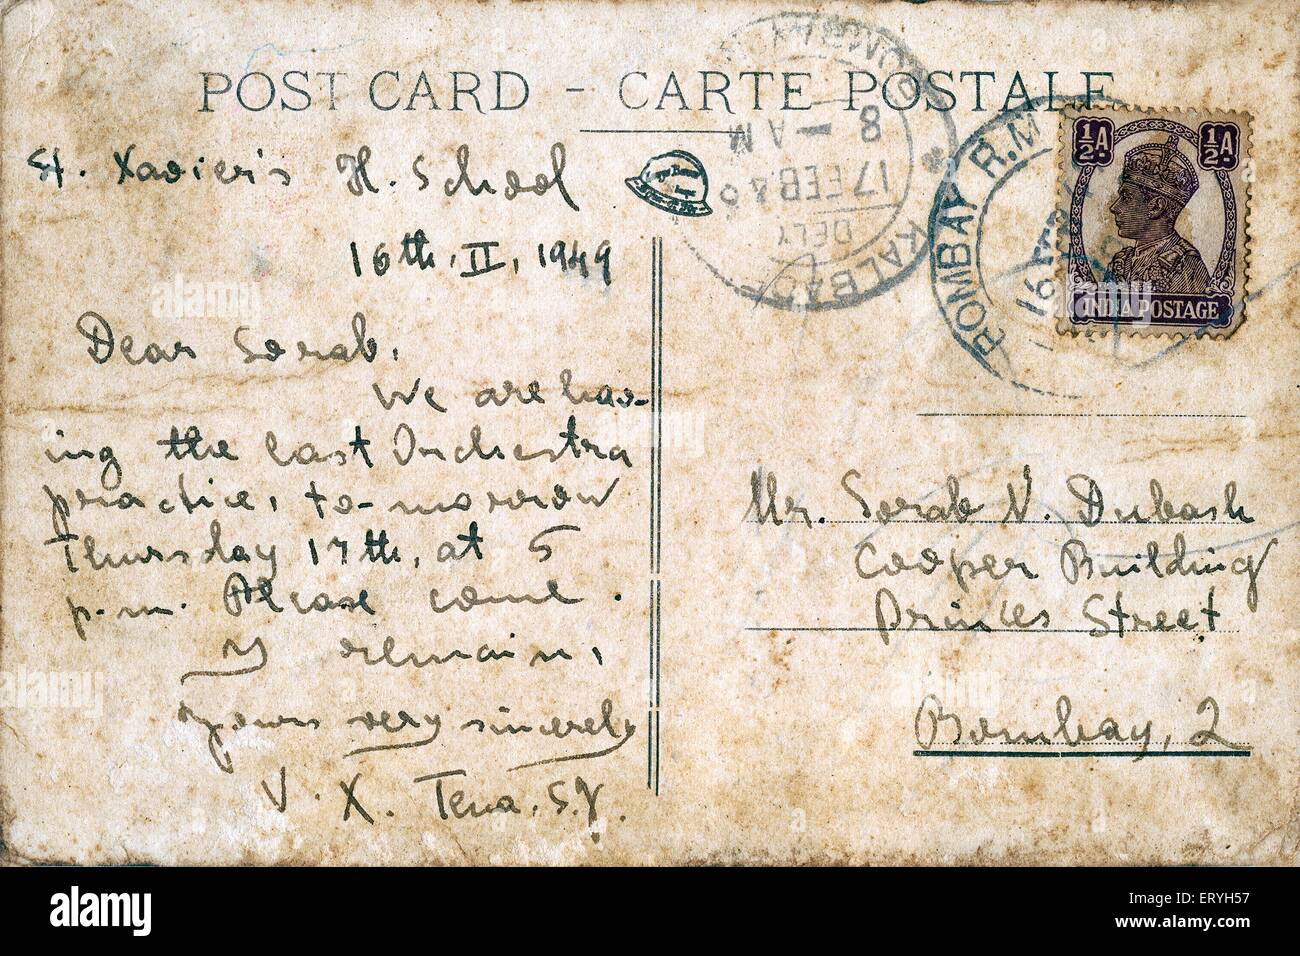 POST CARD - CARTE POSTALE
St. Xavier's H. School
16th, II, 1949
Dear Sorab,
We are hav-
ing the last Orchestra
practice, to-morrow
Thursday 17th, at 5
p.m. Please come.
I remain,
Yours very sincerely
V. X. Tena, S.J.
KALBADE
DELY
17 FEB
8 - AM
BOMBAY R.M
16
½A ½A
INDIA POSTAGE
Mr. Sorab N. Dubash
Cooper Building
Princes Street
Bombay, 2
alamy
Image ID: ERYH57
www.alamy.com